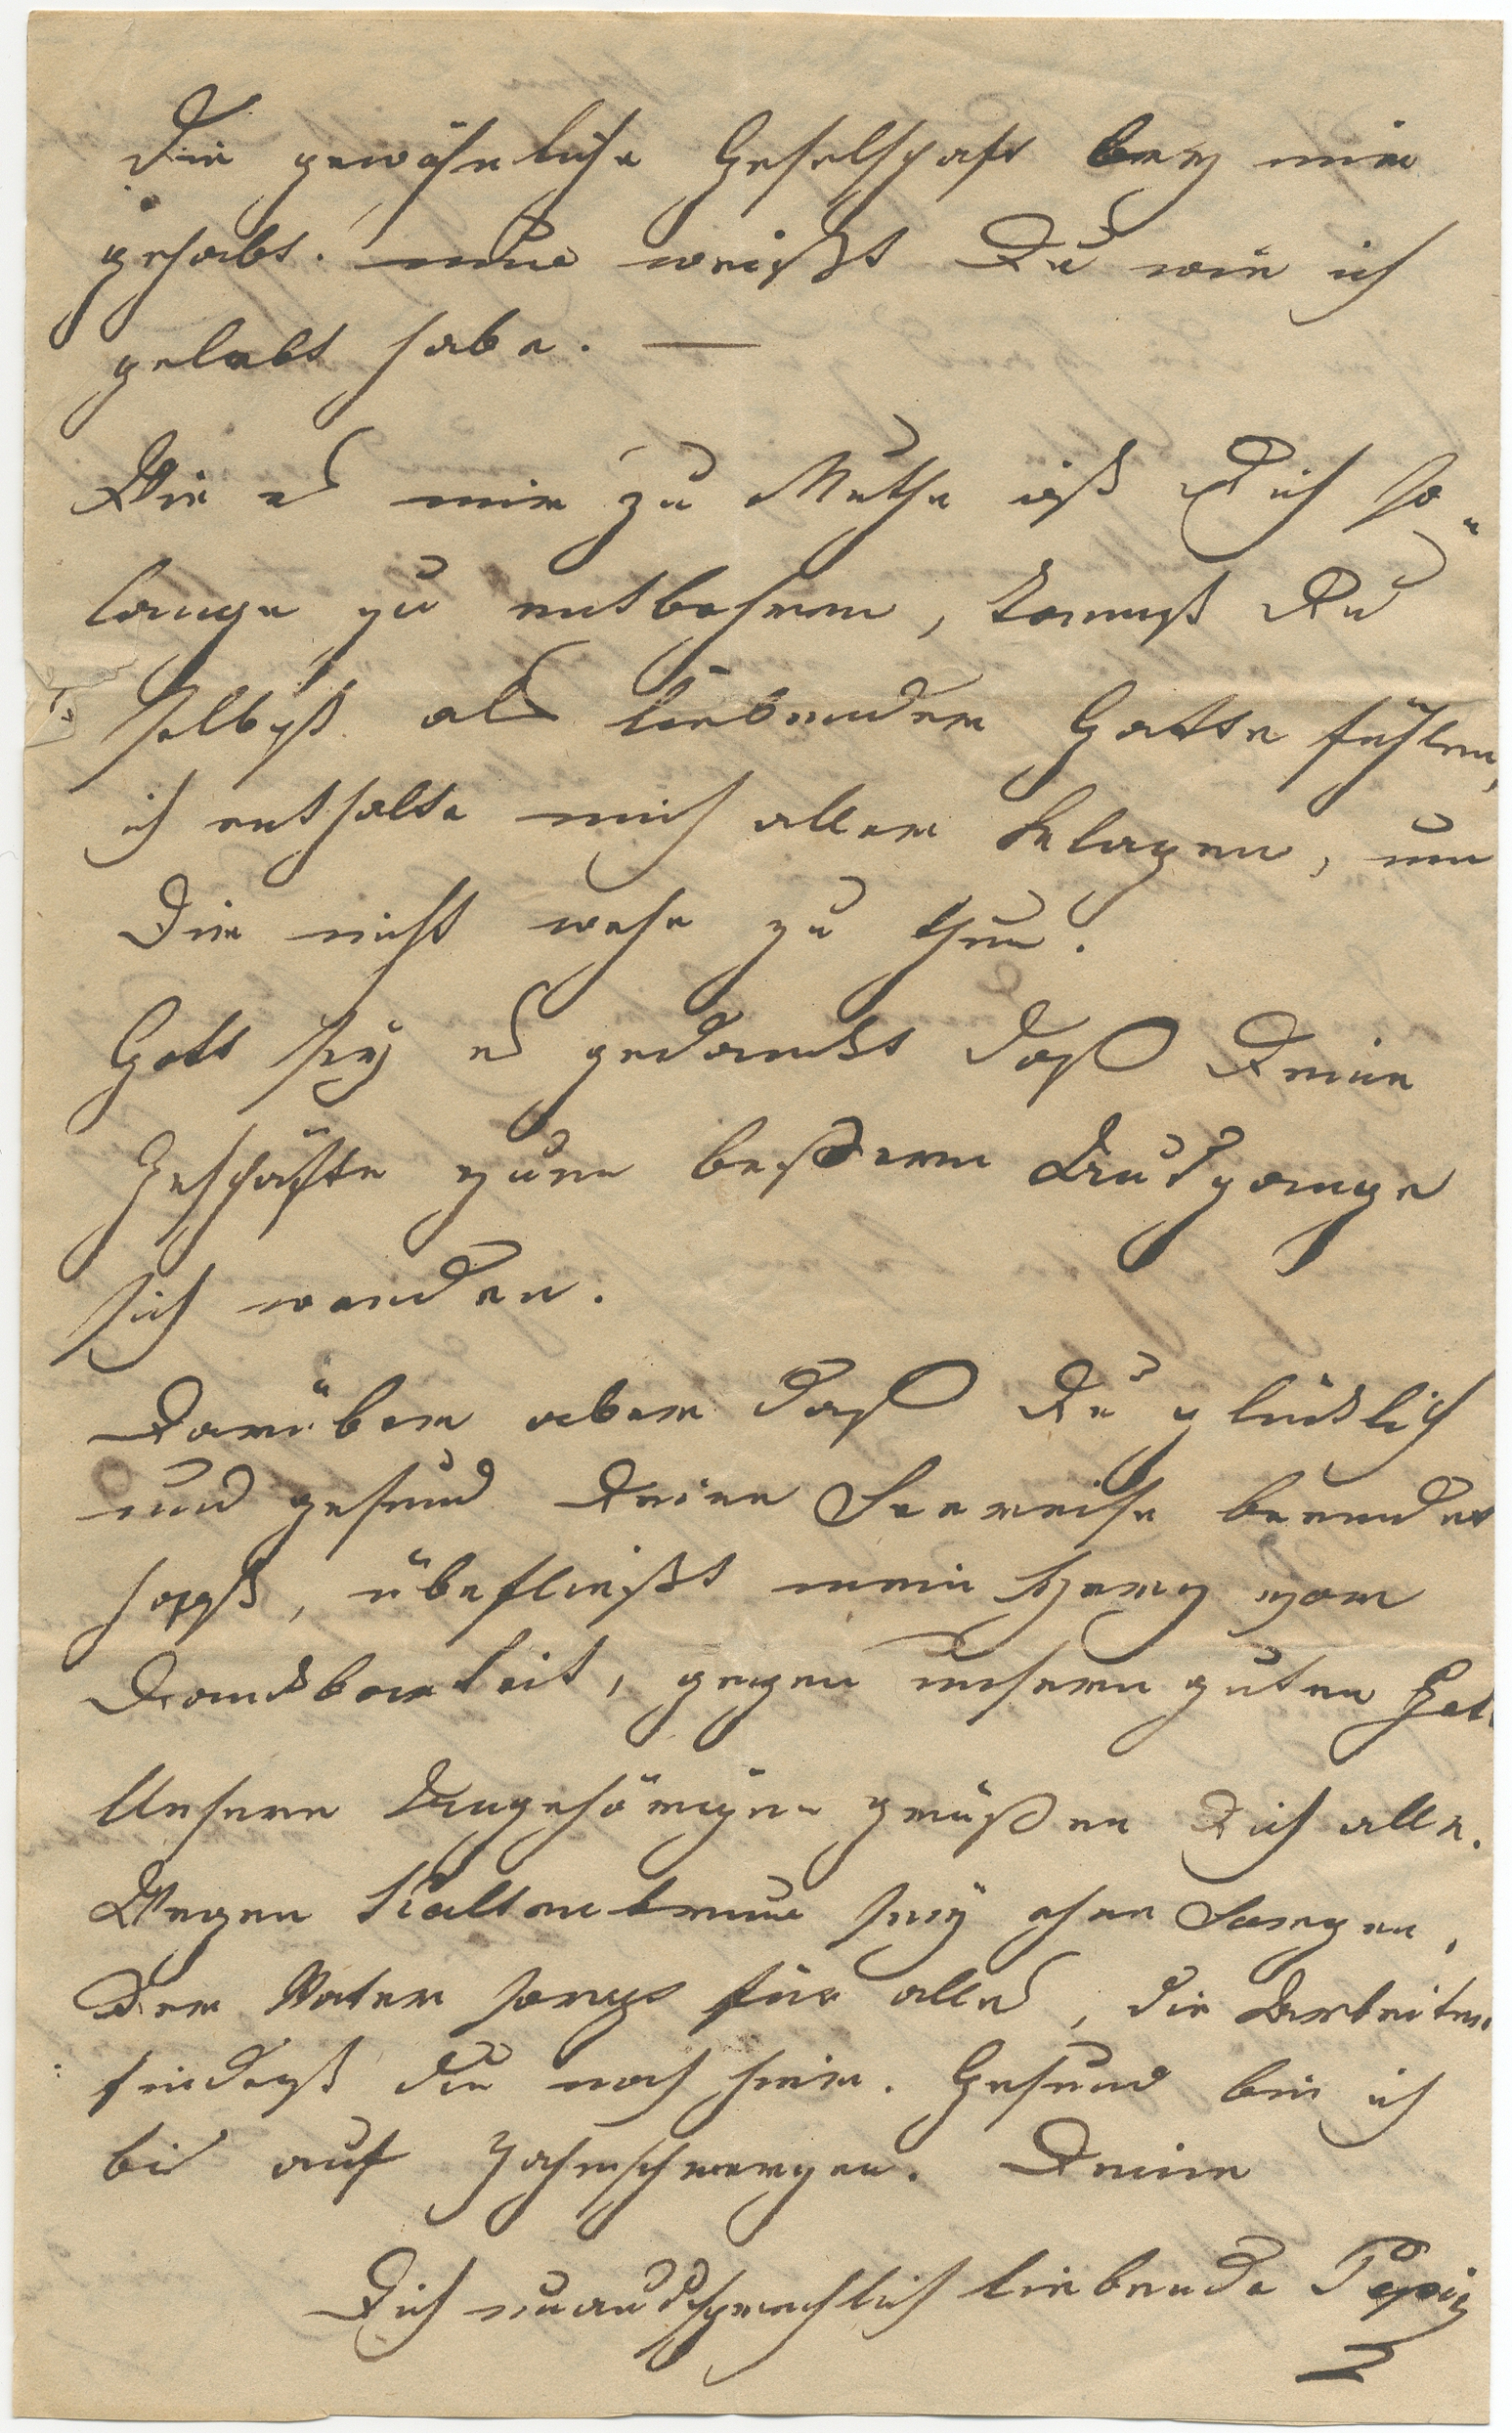 Die gewöhnliche Geselschaft bey mir
gehabt. nun weißt Du wie ich
gelebt habe. —
Wie es mir zu Muthe ist Dich so
lange zu entbehren, kannst Du
selbst als liebender Gatte fühlen,
ich enthalte mich aller Klagen, um
Dir nicht wehe zu thun.
Gott sey es gedankt daß Deine
Geschäfte zum beßeren Ausgange
sich wenden.
Darüber aber daß Du glücklich
und gesund Deine Seereise beendet
hast, übefließt mein Herz von
Dankbarkeit, gegen unsern guten Gott
Unsere Angehörigen grüßen Dich alle.
Wegen Kaltenbrun sey ohne Sorgen,
Der Vater sorgt für alles, die Arbeiten
findest du noch hier. Gesund bin ich
bis auf Zahnschmerzen. Deine
Dich unaussprechlich liebende Pepi